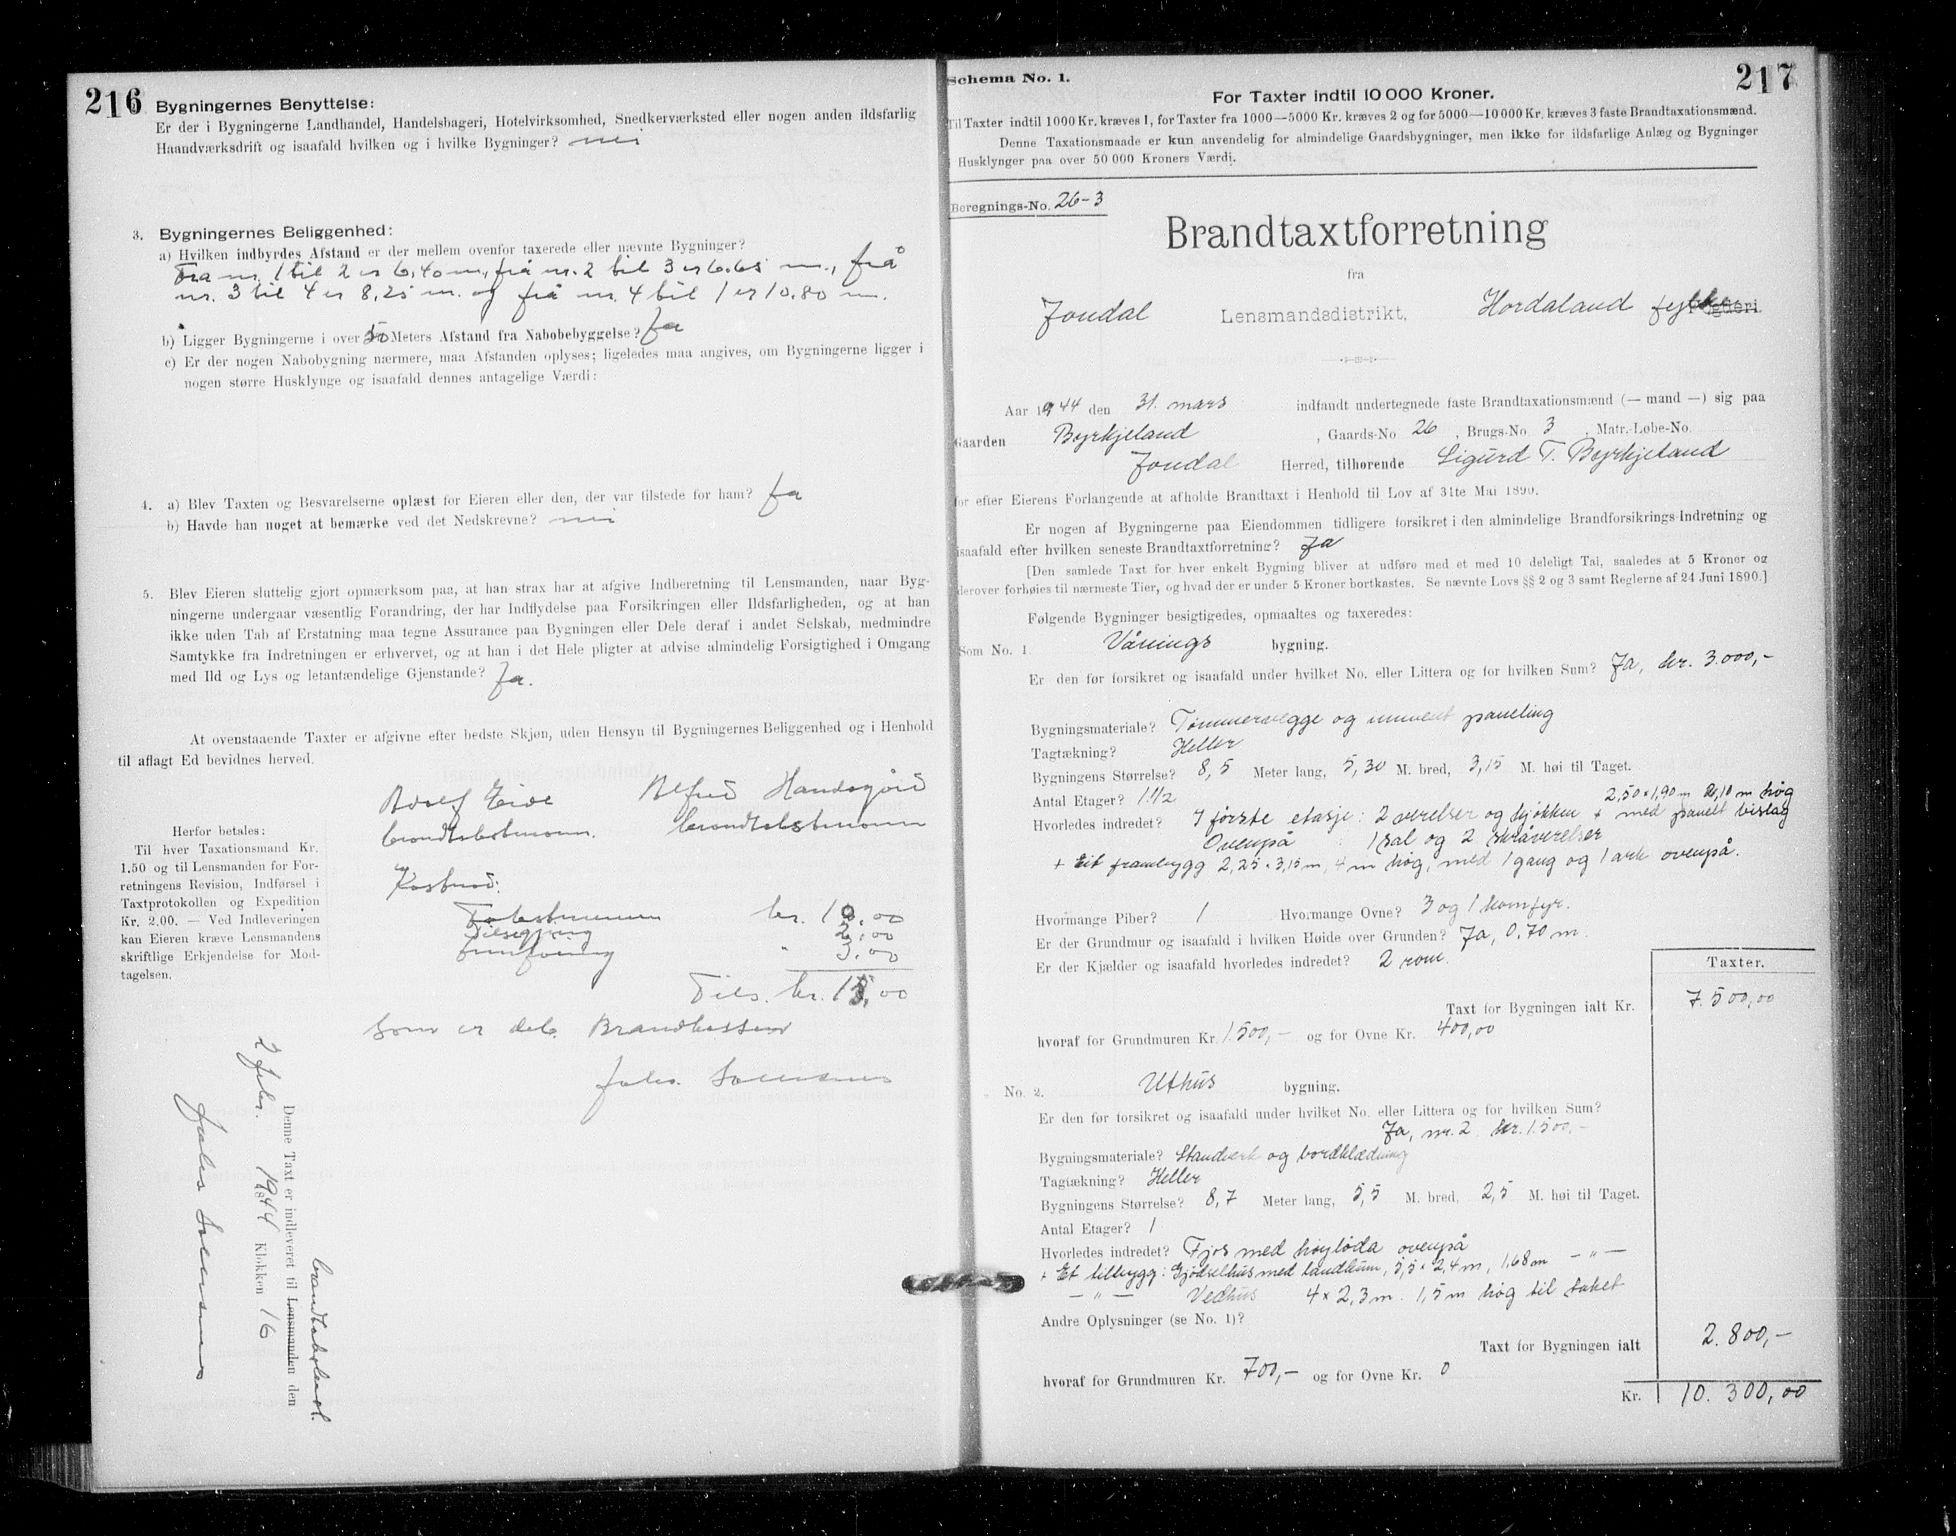 216
Bygningernes Benyttelse:
Er der i Bygningerne Landhandel, Handelsbageri, Hotelvirksomhed, Snedkerværksted eller nogen anden ildsfarlig
Haandværksdrift og isaafald hvilken og i hvilke Bygninger? nei
3. Bygningernes Beliggenhed:
a) Hvilken indbyrdes Afstand er der mellem ovenfor taxerede eller nævnte Bygninger?
Fra nr. 1 til 2 er 6,40 m., frå nr. 2 til 3 er 6.65 m., frå
nr. 3 til 4 er 8,25 m. og frå nr. 4 til 1 er 10.80 m.
b) Ligger Bygningerne i over 50 Meters Afstand fra Nabobebyggelse? Ja
c) Er der nogen Nabobygning nærmere, maa Afstanden oplyses; ligeledes maa angives, om Bygningerne ligger i
nogen større Husklynge og isaafald dennes antagelige Værdi:
4. a) Blev Taxten og Besvarelserne oplæst for Eieren eller den, der var tilstede for ham? Ja
b) Havde han noget at bemærke ved det Nedskrevne? nei
5. Blev Eieren sluttelig gjort opmærksom paa, at han strax har at afgive Indberetning til Lensmanden, naar Byg-
ningerne undergaar væsentlig Forandring, der har Indflydelse paa Forsikringen eller Ildsfarligheden, og at han
ikke uden Tab af Erstatning maa tegne Assurance paa Bygningen eller Dele deraf i andet Selskab, medmindre
Samtykke fra Indretningen er erhvervet, og at han i det Hele pligter at advise almindelig Forsigtighed i Omgang
med Ild og Lys og letantændelige Gjenstande? Ja.
At ovenstaaende Taxter er afgivne efter bedste Skjøn, uden Hensyn til Bygningernes Beliggenhed og i Henhold
til aflagt Ed bevidnes herved.
Adolf Eide Alfred Handegård
Herfor betales:
Til hver Taxationsmand Kr.
1.50 og til Lensmanden for For-
retningens Revision, Indførsel i
Taxtprotokollen og Expedition
Kr. 2.00. — Ved Indleveringen
kan Eieren kræve Lensmandens
skriftlige Erkjendelse for Mod-
tagelsen.
Kostnad:
kr. 10.00
2,00
" 3.00
Tils. kr. 15,00
Som er
Denne Taxt er indleveret til Lensmanden den
2 febr. 1944 Klokken 16
217
Schema No. 1.
For Taxter indtil 10 000 Kroner.
Til Taxter indtil 1000 Kr. kræves 1, for Taxter fra 1000—5000 Kr. kræves 2 og for 5000—10 000 Kr. kræves 3 faste Brandtaxationsmænd.
Denne Taxationsmaade er kun anvendelig for almindelige Gaardsbygninger, men ikke for ildsfarlige Anlæg og Bygninger
i Husklynger paa over 50 000 Kroners Værdi.
Beregnings-No. 26-3
Brandtaxtforretning
fra
Jondal Lensmandsdistrikt, Hordaland fylke Fogderi.
Aar 1944 den 31. mars indfandt undertegnede faste Brandtaxationsmænd (— mand —) sig paa
Gaarden Byrkjeland, Gaards-No 26, Brugs-No. 3, Matr.-Løbe-No.
Jondal Herred, tilhørende Sigurd T. Byrkjeland
for efter Eierens Forlangende at afholde Brandtaxt i Henhold til Lov af 31te Mai 1890.
Er nogen af Bygningerne paa Eiendommen tidligere forsikret i den almindelige Brandforsikrings-Indretning og
isaafald efter hvilken seneste Brandtaxtforretning? Ja
[Den samlede Taxt for hver enkelt Bygning bliver at udføre med et med 10 deleligt Tal, saaledes at 5 Kroner og
derover forhøies til nærmeste Tier, og hvad der er under 5 Kroner bortkastes. Se nævnte Lovs §§ 2 og 3 samt Reglerne af 24 Juni 1890.]
Følgende Bygninger besigtigedes, opmaaltes og taxeredes:
Som No. 1. Vånings bygning.
Er den før forsikret og isaafald under hvilket No. eller Littera og for hvilken Sum? Ja, kr. 3.000,-
Bygningsmateriale? Tømmervegge og utvent paneling
Tagtækning? Heller
Bygningens Størrelse? 8,5 Meter lang, 5,30 M. bred, 3,15 M. høi til Taget.
Antal Etager? 1 1/2 2,50 x 1,90 m 2,10 m høg
Hvorledes indredet? I første etasje: 2 verelser og kjøkken + med panelt bislag
Ovenpå : 1 sal og 2 skråverelser
+ Eit frambygg 2,25 x 3,15 m, 4 m høg, med 1 gang og 1 ark ovenpå.
Hvormange Piber? 1 Hvormange Ovne? 3 og 1 komfyr.
Er der Grundmur og isaafald i hvilken Høide over Grunden? Ja, 0.70 m.
Er der Kjælder og isaafald hvorledes indredet? 2 rom.
Taxter.
Taxt for Bygningen ialt Kr. 7.500,00
hvoraf for Grundmuren Kr. 1.500,- og for Ovne Kr. 400,00
No. 2. Uthus bygning.
Er den før forsikret og isaafald under hvilket No. eller Littera og for hvilken Sum?
Ja, nr. 2 kr. 1.500,-
Bygningsmateriale? Standverk og bordklædning
Tagtækning? Heller
Bygningens Størrelse? 8,7 Meter lang, 5,5 M. bred, 2,5 M. høi til Taget.
Antal Etager? 1
Hvorledes indredet? Fjos med høyløda ovenpå
+ Et tilbygg: Gjødselhus med landkum, 5,5 x 2,4 m, 1,68 m — " —
— " — Vedhus 4 x 2,3 m. 1,5 m høg til taket
Andre Oplysninger (se No. 1)?
Taxt for Bygningen ialt 2.800,-
hvoraf for Grundmuren Kr. 700,- og for Ovne Kr. 0
Kr. 10.300,00